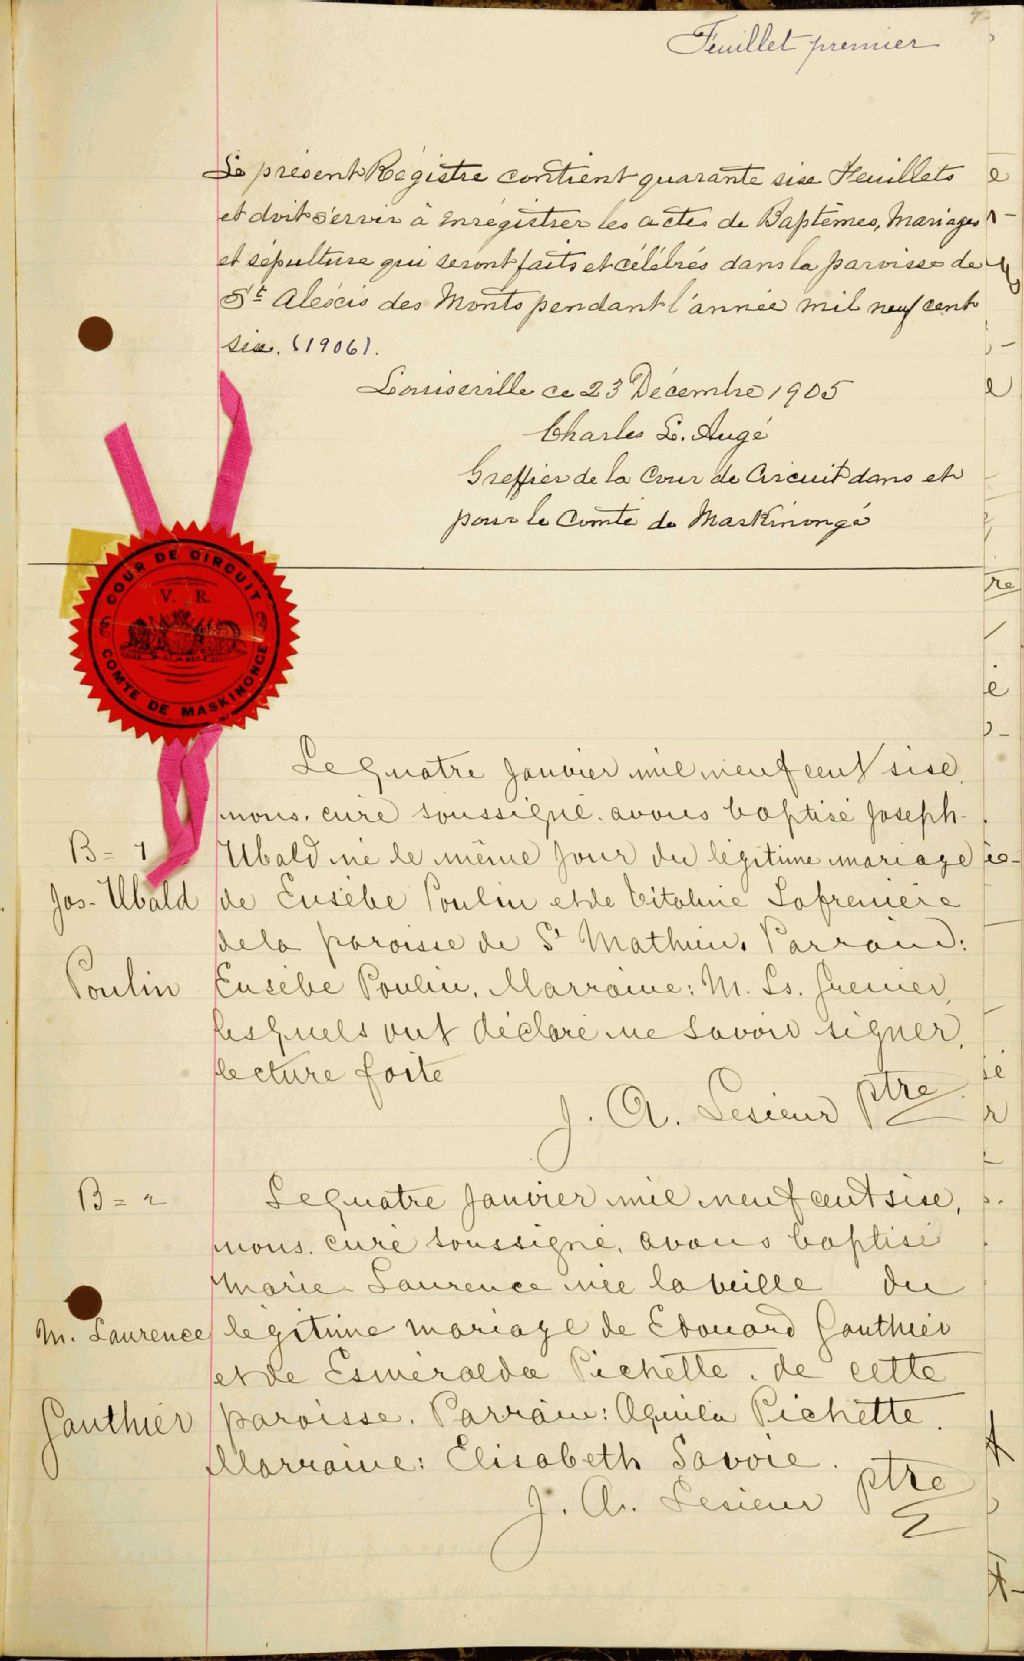 Feuillet premier
Le présent Régistre contient quarante sise Feuillets
et doit servir à enrégistrer les actes de Baptêmes, Mariages
et sépulture qui seront faits et célébrés dans la paroisse de
St Aléxis des Monts pendant l'année mil neuf cent
six. (1906).
Louiseville ce 23 Décembre 1905
Charles L. Augé
Greffier de la Cour de Circuit dans et
pour le Comté de Maskinongé
COUR DE CIRCUIT
V. R.
COMTÉ DE MASKINONGE
Le quatre janvier mil neuf cent sise,
nous, curé soussigné, avons baptisé Joseph-
B = 1
Ubald né le même jour du légitime mariage
Jos- Ubald
de Eusèbe Poulin et de Vitaline Lafrenière
de la paroisse de St Mathieu. Parrain:
Poulin
Eusèbe Poulin, Marraine: M. Ls. Grenier,
lesquels ont déclaré ne savoir signer,
lecture faite
J. A. Lesieur ptre
B = 2
Le quatre janvier mil neuf cent sise,
nous, curé soussigné, avons baptisé
Marie Laurence née la veille du
M. Laurence
légitime mariage de Edouard Gauthier
et de Esméralda Pichette, de cette
Gauthier
paroisse. Parrain: Aquila Pichette.
Marraine: Elisabeth Savoie.
J. A. Lesieur ptre